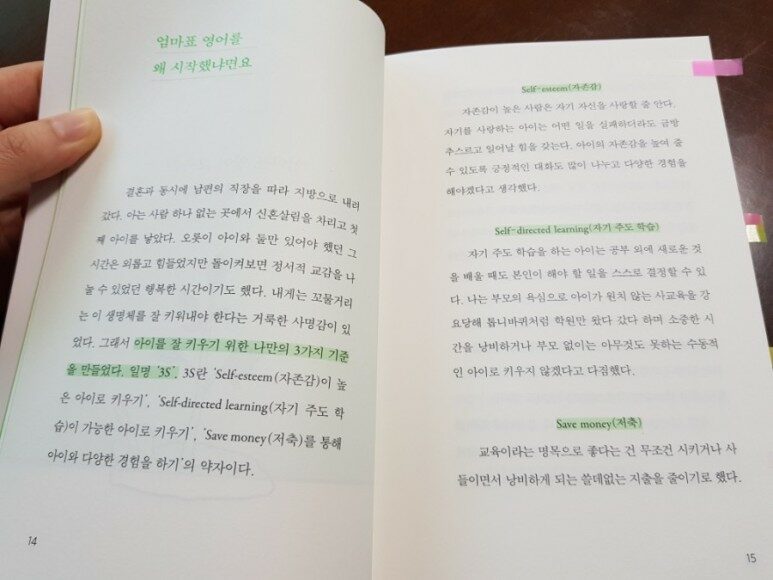 엄마표 영어를
왜 시작했냐면요
결혼과 동시에 남편의 직장을 따라 지방으로 내려
갔다. 아는 사람 하나 없는 곳에서 신혼살림을 차리고 첫
째 아이를 낳았다. 오롯이 아이와 둘만 있어야 했던 그
시간은 외롭고 힘들었지만 돌이켜보면 정서적 교감을 나
눌 수 있었던 행복한 시간이기도 했다. 내게는 꼬물거리
는 이 생명체를 잘 키워내야 한다는 거룩한 사명감이 있
었다. 그래서 아이를 잘 키우기 위한 나만의 3가지 기준
을 만들었다. 일명 '3S'. 3S란 'Self-esteem(자존감)이 높
은 아이로 키우기', 'Self-directed learning(자기 주도 학
습)이 가능한 아이로 키우기', 'Save money(저축)를 통해
아이와 다양한 경험을 하기'의 약자이다.
14
Self-esteem(자존감)
자존감이 높은 사람은 자기 자신을 사랑할 줄 안다.
자기를 사랑하는 아이는 어떤 일을 실패하더라도 금방
추스르고 일어날 힘을 갖는다. 아이의 자존감을 높여 줄
수 있도록 긍정적인 대화도 많이 나누고 다양한 경험을
해야겠다고 생각했다.
Self-directed learning(자기 주도 학습)
자기 주도 학습을 하는 아이는 공부 외에 새로운 것
을 배울 때도 본인이 해야 할 일을 스스로 결정할 수 있
다. 나는 부모의 욕심으로 아이가 원치 않는 사교육을 강
요당해 톱니바퀴처럼 학원만 왔다 갔다 하며 소중한 시
간을 낭비하거나 부모 없이는 아무것도 못하는 수동적
인 아이로 키우지 않겠다고 다짐했다.
Save money(저축)
교육이라는 명목으로 좋다는 건 무조건 시키거나 사
들이면서 낭비하게 되는 쓸데없는 지출을 줄이기로 했다.
15